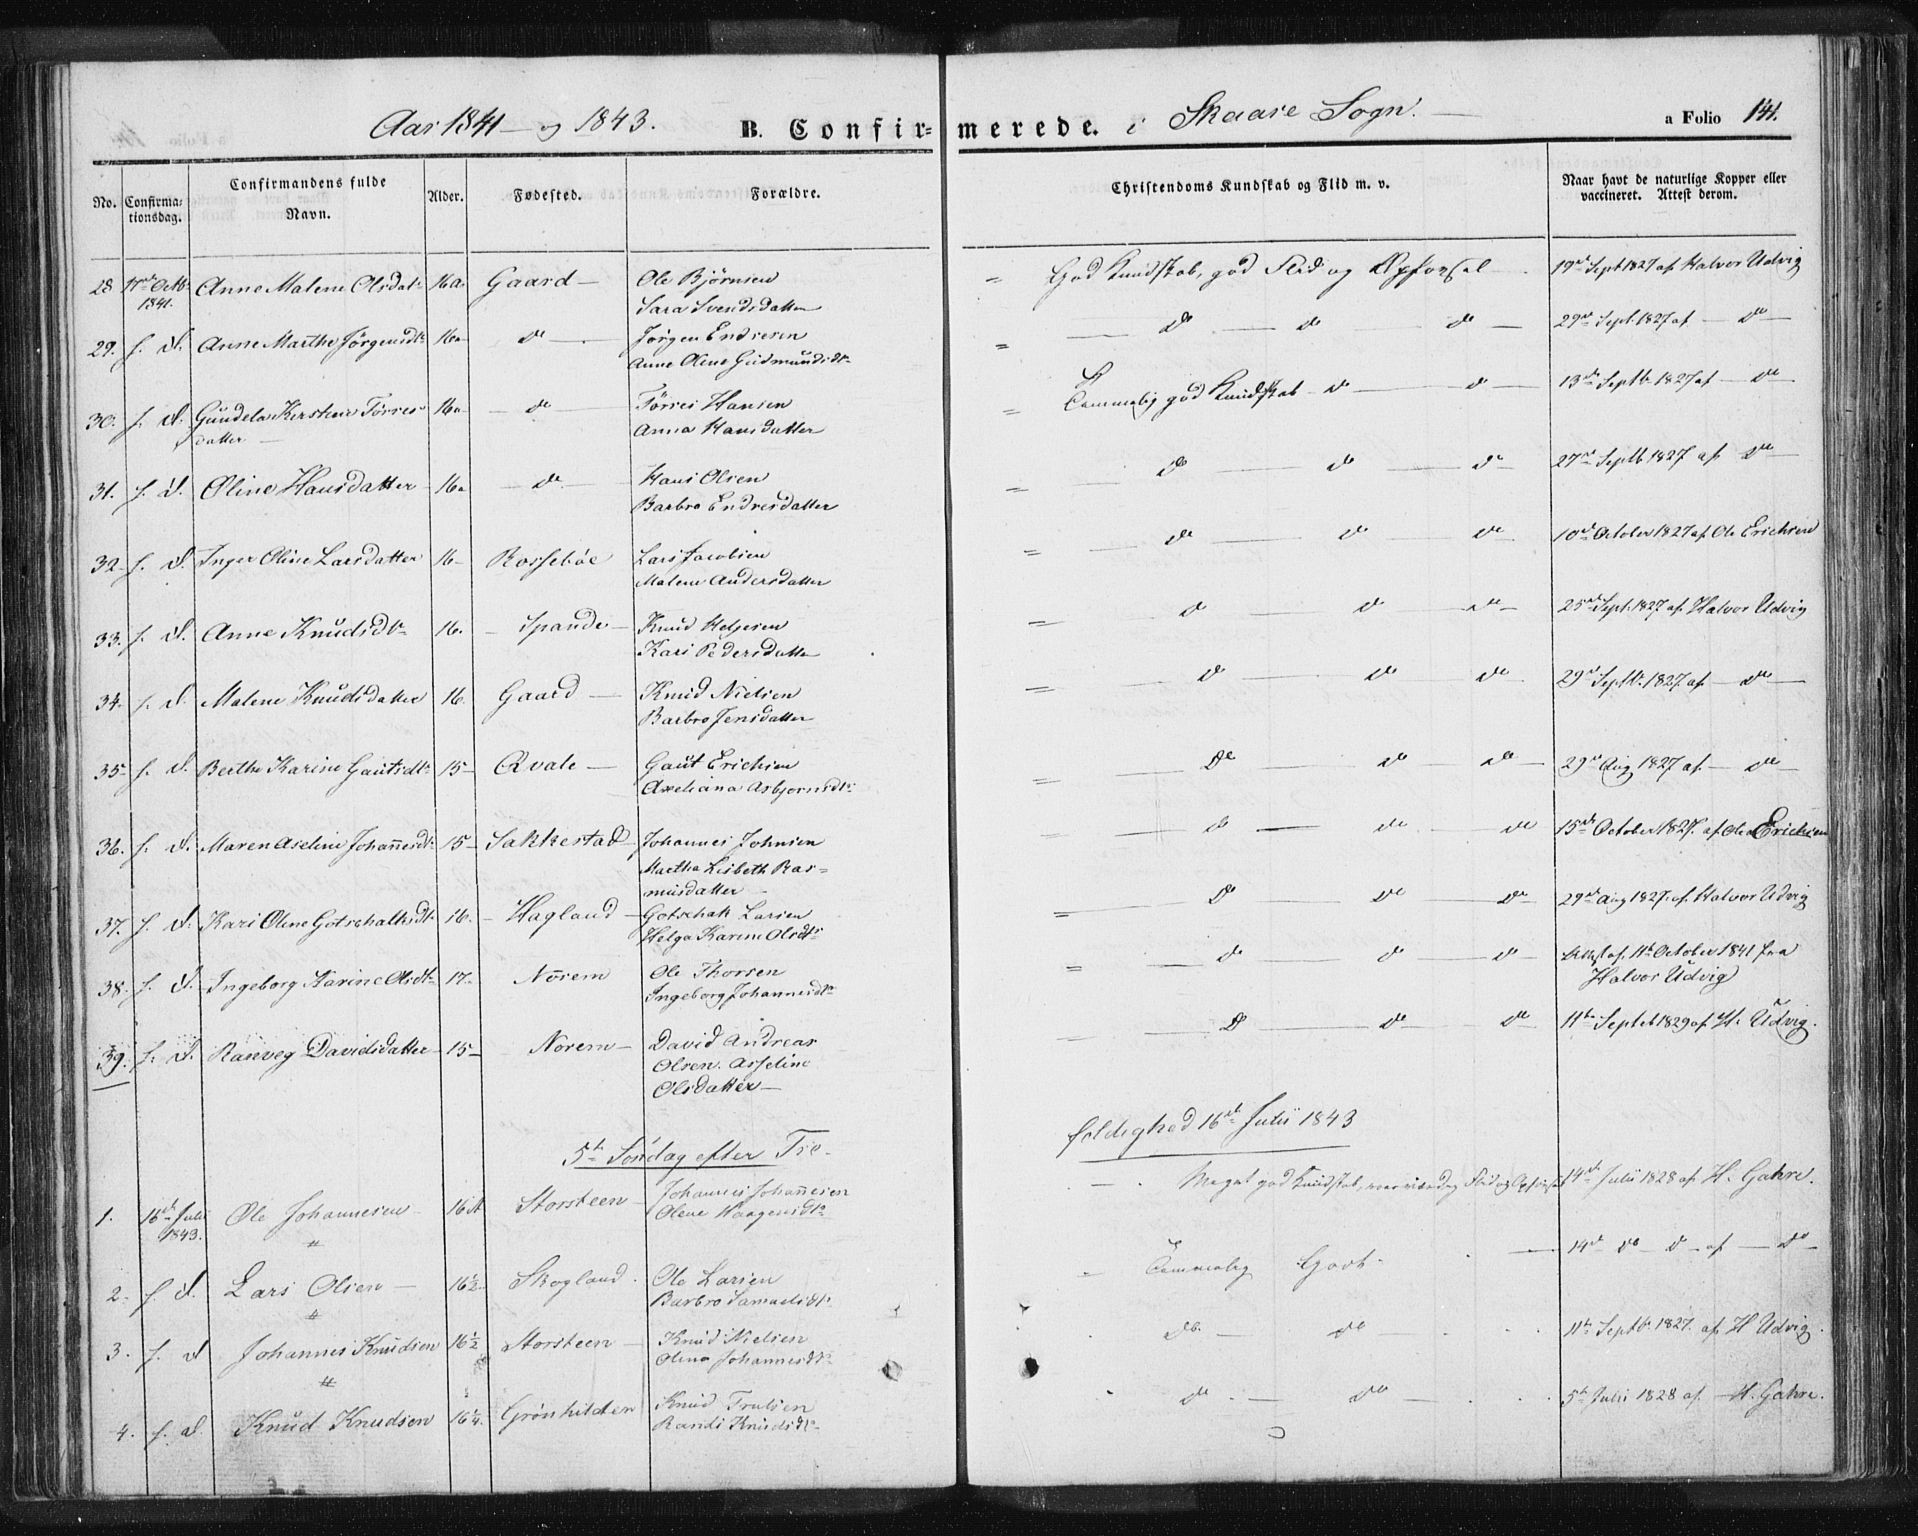 Aar 1841 – og 1843. B. Confirmerede. i Skaare Sogn. – a Folio 141.
No. Confirmationsdag. Confirmandens fulde Navn. Alder. Fødested. Forældre. Christendoms Kundskab og Flid m. v. Naar havt de naturlige Kopper eller vaccineret. Attest derom.
28. 17de Octbr 1841. Anne Malene Olsdatr 16 a. Gaard – Ole Bjørnsen = God Kundskab, god Flid og Opførsel 19de Sept 1827 af Halvor Udvig
Sara Svendsdatter
29. s. d. Anne Marthe Jørgensdtr 16 a de – Jørgen Endresen = do – do – do – 29de Sept. 1827 af – do –
Anne Olene Gudmundsdtr
30. s. d. Gundela Kirstine Tørres- 16 a – do Tørres Hansen = Temmelig god Kundskab – do – do – 13de Septbr 1827 af – do
datter – Anna Hansdatter
31. s. d. Oline Hansdatter 16 a – do – Hans Olsen = do – do – do 27de Septb 1827 af do –
Barbro Endresdatter
32. s. d. Inger Oline Larsdatter 16 – Rossebøe Lars Jacobsen = do – do – do 10de October 1827 af Ole Erichsen
Malene Andersdatter
33. s. d. Anne Knudsdtr 16. – Spande – Knud Helgesen = do – do – do – 25de Sept. 1827 af Halvor Udvig
Kari Pedersdatter
34. s. d. Malene Knudsdatter 16. Gaard – Knud Nielsen = do – do – do 29de Septbr. 1827 af – do –
Barbro Jensdatter
35 s. d. Berthe Karine Gautsdtr 15 – Qvale – Gaut Erichsen = do – do – do – 29de Aug 1827 af. – do –
Axeliana Asbjornsdtr
36. s. d. Maren Aseline Johannesdtr 15 – Sakkestad – Johannes Johnsen = do – do – do 15de October 1827. af Ole Erichsen
Martha Lisbeth Ras=
musdatter –
37. s. d. Kari Olene Gotschalksdtr 16. – Hagland – Gotschalk Larsen = do – do – do 29de Aug 1827. af. Halvor Udvig
Helga Karine Olsdtr
38. s. d. Ingeborg Karine Olsdtr 17. Norem Ole Thorsen = do – do – do Attest af. 11te October 1841 fra
Ingeborg Johannesdtr Halvor Udvig
39. s. d. Ranveg Davidsdatter 15 – Norem – David Andreas – do – do – do 11te Septbr 1829 af. H. Udvig.
Olsen. Asseline
Olsdatter –
5te Søndag efter Tre. 16de Julii 1843
1. 16de Juli 1843. Ole Johannesen 16 A Storsteen – Johannes Johannesen Meget god Kundskab, Flid og Opførsel 14de Julii 1828 af H. Gahre.
Olene Haagensdtr
2. s. d. Lars Olsen – 16½. Skogland. Ole Larsen Temmelig Godt. 14de do – do – af – do –
Barbro Samuelsdtr
3. s. d Johannes Knudsen 16½ Storsteen – Knud Nielsen do. – do 11te Septbr. 1827. af H Udvig.
Olena Johannesdtr
4. s. d. Knud Knudsen 16¼. Grønhilden Knud Trulsen do – do – 5te Julii 1828 af. H. Gahre.
Randi Knudsdtr